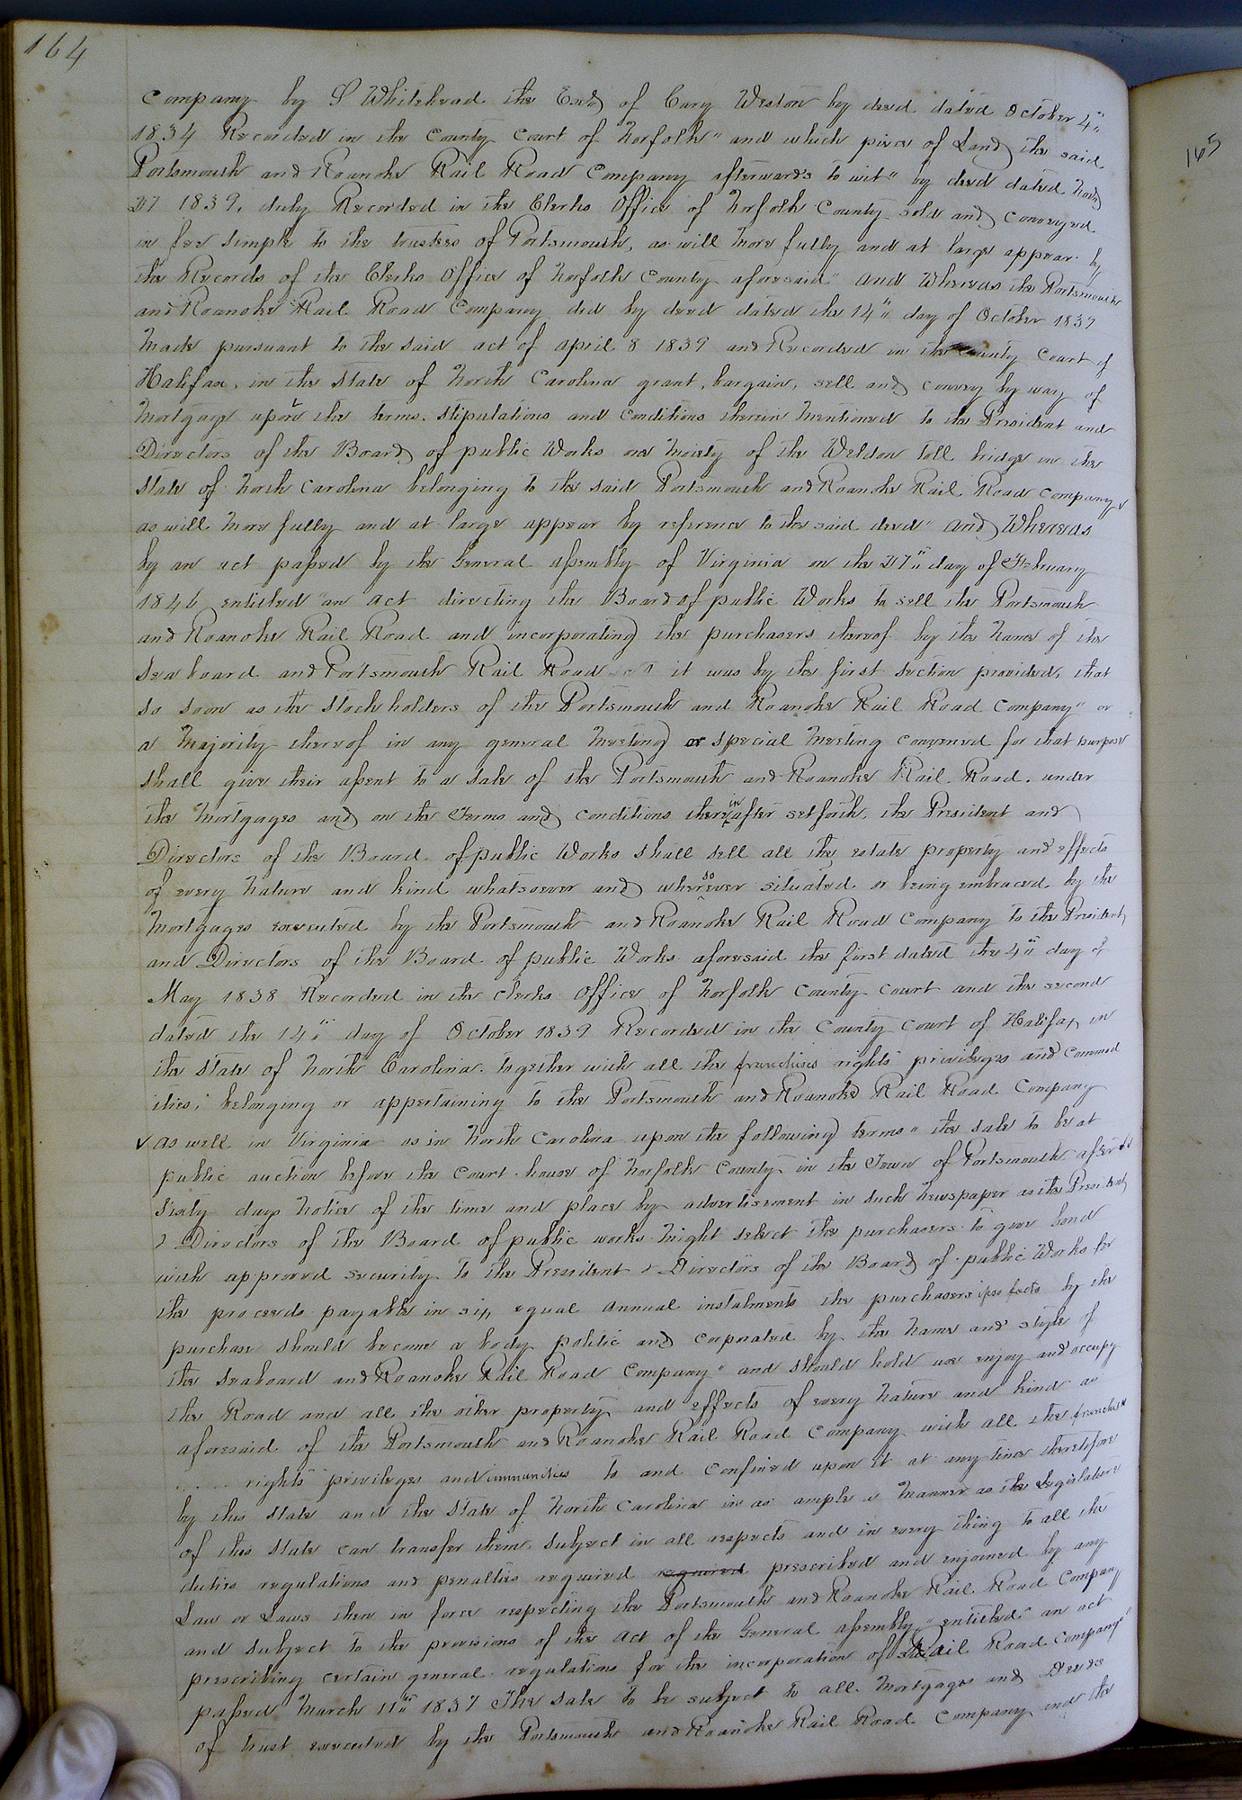 164
165
Company by S Whitehead the Exr of Cary Weston by deed dated October 4"
1834 Recorded in the County Court of Norfolk" and which piece of Land the said
Portsmouth and Roanoke Rail Road Company afterwards to wit" by deed dated
27 1839, duly Recorded in the Clerks Office of Norfolk County sold and conveyed
in fee simple to the trustees of Portsmouth, as will more fully and at large appear by
the Records of the Clerks Office of Norfolk County aforesaid" and Whereas the Portsmouth
and Roanoke Rail Road Company did by deed dated the 14" day of October 1839
Made pursuant to the said act of april 8 1839 and Recorded in the County Court of
Halifax, in the State of North Carolina grant, bargain, sell and convey by way of
Mortgage upon the terms, stipulations and conditions therein mentioned to the President and
Directors of the Board of public Works one Moiety of the Weldon toll bridge in the
State of North Carolina belonging to the said Portsmouth and Roanoke Rail Road Company
as will more fully and at large appear by reference to the said deed" and Whereas
by an act passed by the General assembly of Virginia on the 27" day of February
1846 entitled "an act directing the Board of public Works to sell the Portsmouth
and Roanoke Rail Road and incorporating the purchasers thereof by the name of the
Seaboard and Portsmouth Rail Road it was by the first section provided, that
so soon as the stockholders of the Portsmouth and Roanoke Rail Road Company" or
a Majority thereof in any general meeting or special meeting convened for that purpose
shall give their assent to a sale of the Portsmouth and Roanoke Rail Road, under
the Mortgages and on the terms and conditions thereinafter setforth, the President and
Directors of the Board of public Works shall sell all the estate property and effects
of every nature and kind whatsoever and wheresoever situated or being embraced by the
Mortgages executed by the Portsmouth and Roanoke Rail Road Company to the President
and Directors of the Board of public Works aforesaid the first dated the 4" day of
May 1838 Recorded in the clerks office of Norfolk County Court and the second
dated the 14" day of October 1839 Recorded in the County Court of Halifax in
the State of North Carolina, together with all the franchises rights privileges and commod
ities, belonging or appertaining to the Portsmouth and Roanoke Rail Road Company
as well in Virginia as in North Carolina upon the following terms" the sale to be at
public auction before the Court house of Norfolk County in the Town of Portsmouth after
Sixty days notice of the time and place by advertisement in such newspaper as the President
& Directors of the Board of public works might select the purchasers to give bond
with approved security to the President & Directors of the Board of public Works for
the proceeds payable in six equal annual instalments the purchasers ipso facto by the
purchase should become a body politic and corporated by the name and style of
the Seaboard and Roanoke Rail Road Company" and should hold use enjoy and occupy
the Road and all the other property and effects of every nature and kind as
aforesaid of the Portsmouth and Roanoke Rail Road Company with all the franchises
rights privileges and immunities to and confined upon it at any time theretofore
by this State and the State of North Carolina in as ample a manner as the Legislature
of this State can transfer them, subject in all respects and in every thing to all the
duties regulations and penalties required required prescribed and enjoined by any
Law or Laws then in force respecting the Portsmouth and Roanoke Rail Road Company
and subject to the provisions of the act of the General assembly "entitled" an act
prescribing certain general regulations for the incorporation of Rail Road Company"
passed March 11" 1837 The sale to be subject to all Mortgages and Deeds
of trust executed by the Portsmouth and Roanoke Rail Road Company and the